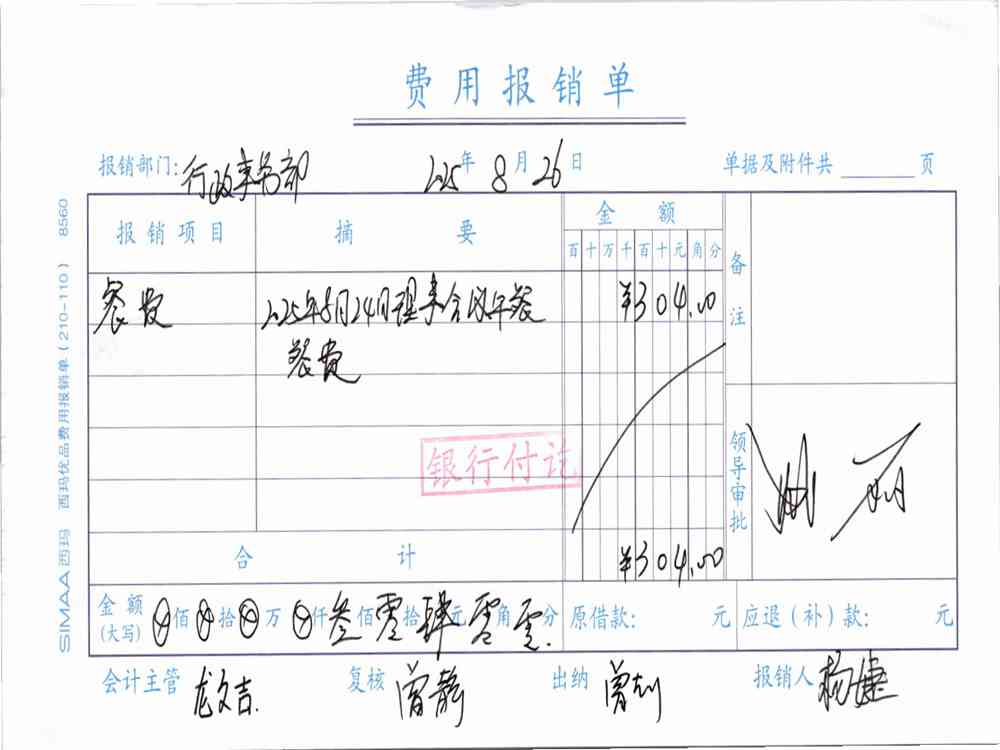 费用报销单
报销部门: 行政事务部 2025年 8月 26日 单据及附件共 页
报销项目 摘要 金额 备注
百 十 万 千 百 十 元 角 分
餐费 2025年8月24日理事会议午餐 ¥304.00
餐费
银行付讫
领导审批
合计 ¥304.00
金额(大写) 佰 拾 万 仟叁佰零拾肆元零角零分 原借款: 元 应退(补)款: 元
会计主管 龙文吉 复核 曾静 出纳 报销人
SIMAA西玛 西玛优品费用报销单(210-110) 8560